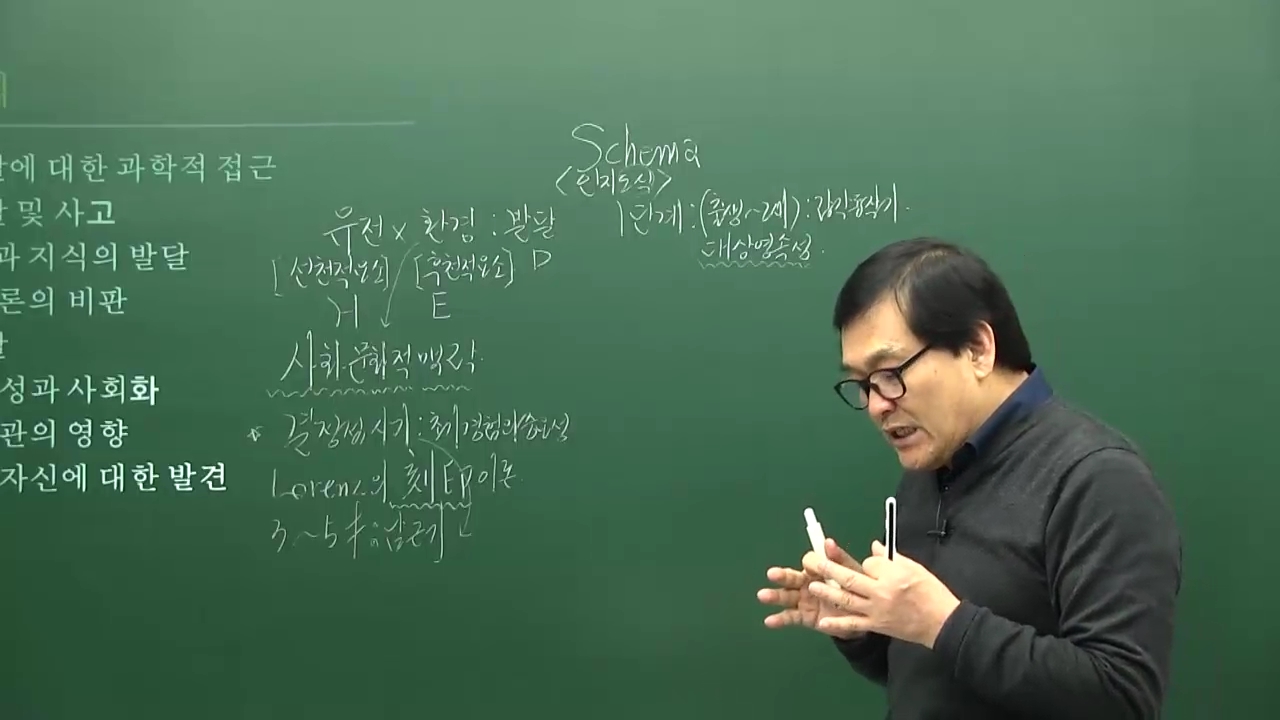 에 대한 과학적 접근
및 사고
과 지식의 발달
론의 비판
달
성과 사회화
관의 영향
자신에 대한 발견
유전 x 환경 : 발달
[선천적요소] [후천적요소] D
H E
사회·문화적 맥락.
결정적 시기 : 초기경험의 중요성
Lorenz의 刻印 이론.
3~5才 남근기
Schema
<인지도식>
1단계 : (출생~2세) : 감각동작기.
대상영속성.